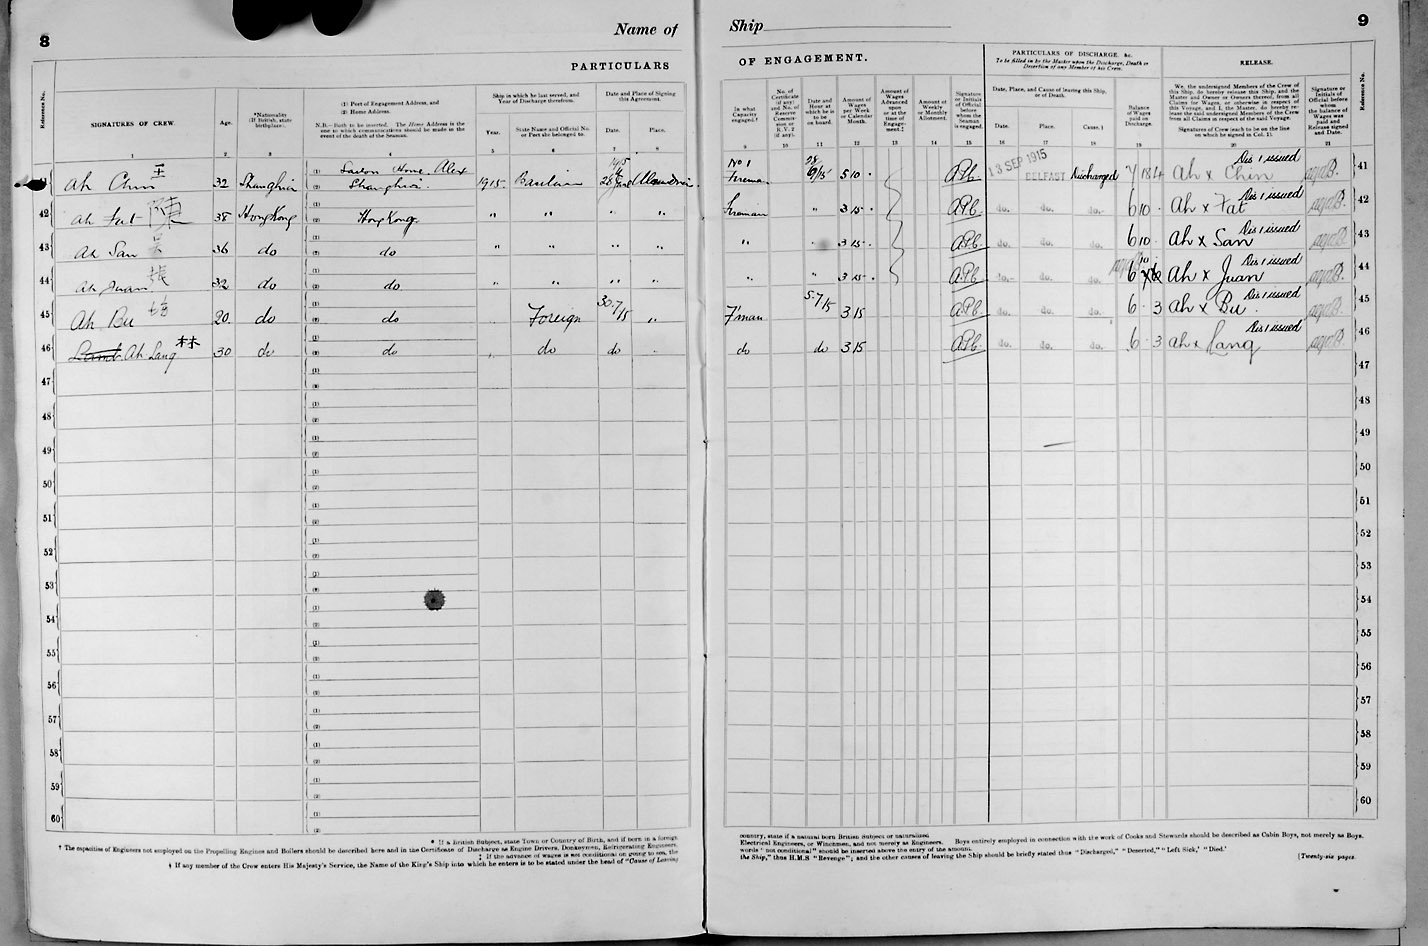 8
Name of
Ship
9
PARTICULARS
OF ENGAGEMENT.
PARTICULARS OF DISCHARGE, &c.
To be filled in by the Master upon the Discharge, Death or Desertion of any Member of his Crew.
RELEASE.
Reference No.
SIGNATURES OF CREW.
Age.
*Nationality (If British, state birthplace).
(1) Port of Engagement Address, and
(2) Home Address.
N.B.—Both to be inserted. The Home Address is the one to which communications should be made in the event of the death of the Seaman.
Ship in which he last served, and Year of Discharge therefrom.
Year.
State Name and Official No. or Port she belonged to.
Date and Place of Signing this Agreement.
Date.
Place.
In what Capacity engaged.†
No. of Certificate (if any) and No. of Reserve Commission or R.V. 2 (if any).
Date and Hour at which he is to be on board.
Amount of Wages per Week or Calendar Month.
Amount of Wages Advanced upon or at the time of Engagement.‡
Amount of Weekly or Monthly Allotment.
Signature or Initials of Official before whom the Seaman is engaged.
Date, Place, and Cause of leaving this Ship, or of Death.
Date.
Place.
Cause.§
Balance of Wages paid on Discharge.
We, the undersigned Members of the Crew of this Ship, do hereby release this Ship, and the Master and Owner or Owners thereof, from all Claims for Wages, or otherwise in respect of this Voyage, and I, the Master, do hereby release the said undersigned Members of the Crew from all Claims in respect of the said Voyage.
Signatures of Crew (each to be on the line on which he signed in Col. 1).
Signature or Initials of Official before whom the balance of Wages was paid and Release signed and Date.
Reference No.
1 2 3 4 5 6 7 8 9 10 11 12 13 14 15 16 17 18 19 20 21
Ah Chin 王 32 Shanghai Sailors Home Alex Shanghai 1915 Alexandria No 1 Fireman 5 10 13 SEP 1915 BELFAST Discharged 7 18 4 Ah x Chin Dis 1 issued 41
42 Ah Fat 陳 38 Hong Kong Hong Kong " " " " Fireman " 3 15 do. do. do. 6 10 Ah x Fat Dis 1 issued 42
43 Ah San 吴 36 do do " " " " " 3 15 do. do. do. 6 10 Ah x San Dis 1 issued 43
44 Ah Juan 張 32 do do " " " " " " 3 15 do. do. do. 6 10 Ah x Juan Dis 1 issued 44
45 Ah Bu 20 do do Foreign 30.7/15 " F'man 5.7/15 3 15 do. do. do. 6 3 Ah x Bu Dis 1 issued 45
46 Ah Lang 林 30 do do do do do do 3 15 do. do. do. 6 3 Ah x Lang Dis 1 issued 46
47 47
48 48
49 49
50 50
51 51
52 52
53 53
54 54
55 55
56 56
57 57
58 58
59 59
60 60
* If a British Subject, state Town or Country of Birth, and if born in a foreign country, state if a natural born British Subject or naturalized.
† The capacities of Engineers not employed on the Propelling Engines and Boilers should be described here and in the Certificate of Discharge as Engine Drivers, Donkeymen, Refrigerating Engineers, Electrical Engineers, or Winchmen, and not merely as Engineers. Boys entirely employed in connection with the work of Cooks and Stewards should be described as Cabin Boys, not merely as Boys.
‡ If the advance of wages is not conditional on going to sea, the words "not conditional" should be inserted above the entry of the amount.
§ If any member of the Crew enters His Majesty's Service, the Name of the King's Ship into which he enters is to be stated under the head of "Cause of Leaving the Ship," thus H.M.S "Revenge"; and the other causes of leaving the Ship should be briefly stated thus "Discharged," "Deserted," "Left Sick," "Died."
[Twenty-six pages.